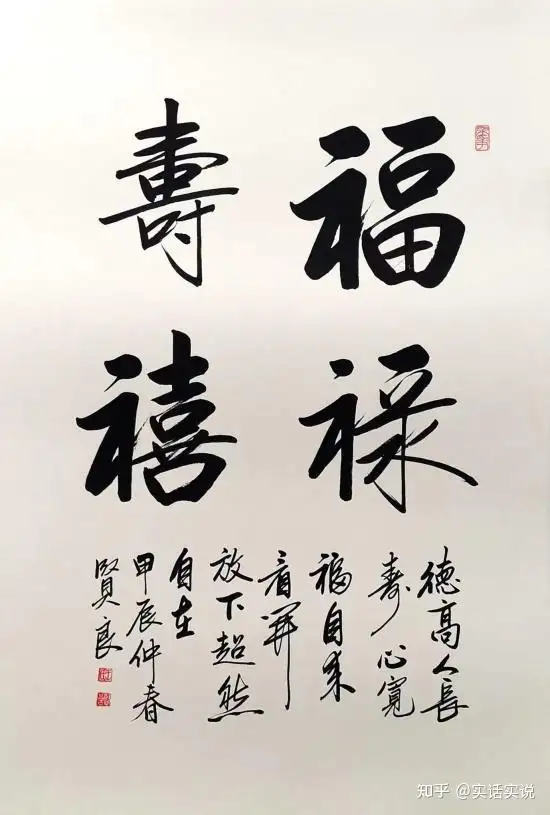 福祿
壽禧
德高人長
壽心寬
福自來
看開
放下超然
自在
甲辰仲春
賢良
知乎 @实话实说